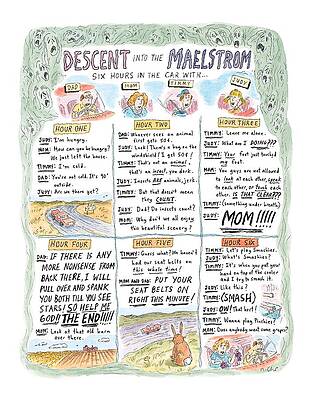 DESCENT INTO THE MAELSTROM
SIX HOURS IN THE CAR WITH...
DAD
MOM
TIMMY
JUDY
HOUR ONE
JUDY: I'm hungry.
MOM: How can you be hungry?
We just left the house.
TIMMY: I'm cold.
DAD: You're not cold. It's 90°
outside.
JUDY: Are we there yet?
HOUR TWO
DAD: Whoever sees an animal
first gets 50¢.
JUDY: Look! There's a bug on the
windshield! I get 50¢!
TIMMY: That's not an animal,
that's an insect, you dork.
JUDY: Insects ARE animals, jerk.
TIMMY: But that doesn't mean
they COUNT.
JUDY: Dad! Do insects count?
MOM: Why don't we all enjoy
this beautiful scenery?
HOUR THREE
TIMMY: Leave me alone.
JUDY: What am I DOING???
TIMMY: Your foot just touched
my foot.
MOM: You guys are not allowed
to look at each other, speak
to each other, or touch each
other. IS THAT CLEAR???
TIMMY: (Something under breath)
JUDY: MOM!!!!!
HOUR FOUR
DAD: IF THERE IS ANY
MORE NONSENSE FROM
BACK THERE, I WILL
PULL OVER AND SPANK
YOU BOTH TILL YOU SEE
STARS! SO HELP ME
GOD!! THE END!!!!
MOM: Look at that old barn
over there.
HOUR FIVE
TIMMY: Guess what? We haven't
had our seat belts on
this whole time!
MOM AND DAD: PUT YOUR
SEAT BELTS ON
RIGHT THIS MINUTE!
HOUR SIX
TIMMY: Let's play Smashies.
JUDY: What's Smashies?
TIMMY: It's when you put your
hand on top of the cooler
and I try to smash it.
JUDY: Like this?
TIMMY: (SMASH)
JUDY: OW! That hurt!
TIMMY: Wanna play Pinchies?
MOM: Does anybody want some grapes?